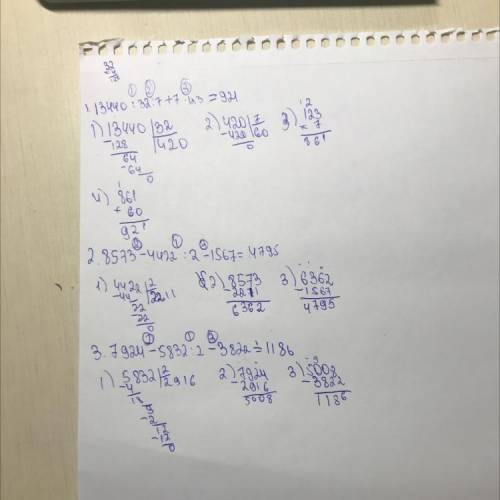 ① ② ③
1. 13440:32:7+7·123=921
1) 13440 | 32 2) 420 | 7 3) 123
-128 | 420 -420 | 60 × 7
64 0 861
-64
0
4) 861
+ 60
921
② ① ③
2. 8573-4422:2-1567=4795
1) 4422 | 2 2) 8573 3) 6362
-44 | 2211 2211 -1567
22 6362 4795
-22
0
② ① ③
3. 7924-5832:2-3822=1186
1) 5832 | 2 2) 7924 3) 5008
-4 | 2916 -2916 -3822
18 5008 1186
3
-2
12
-12
0